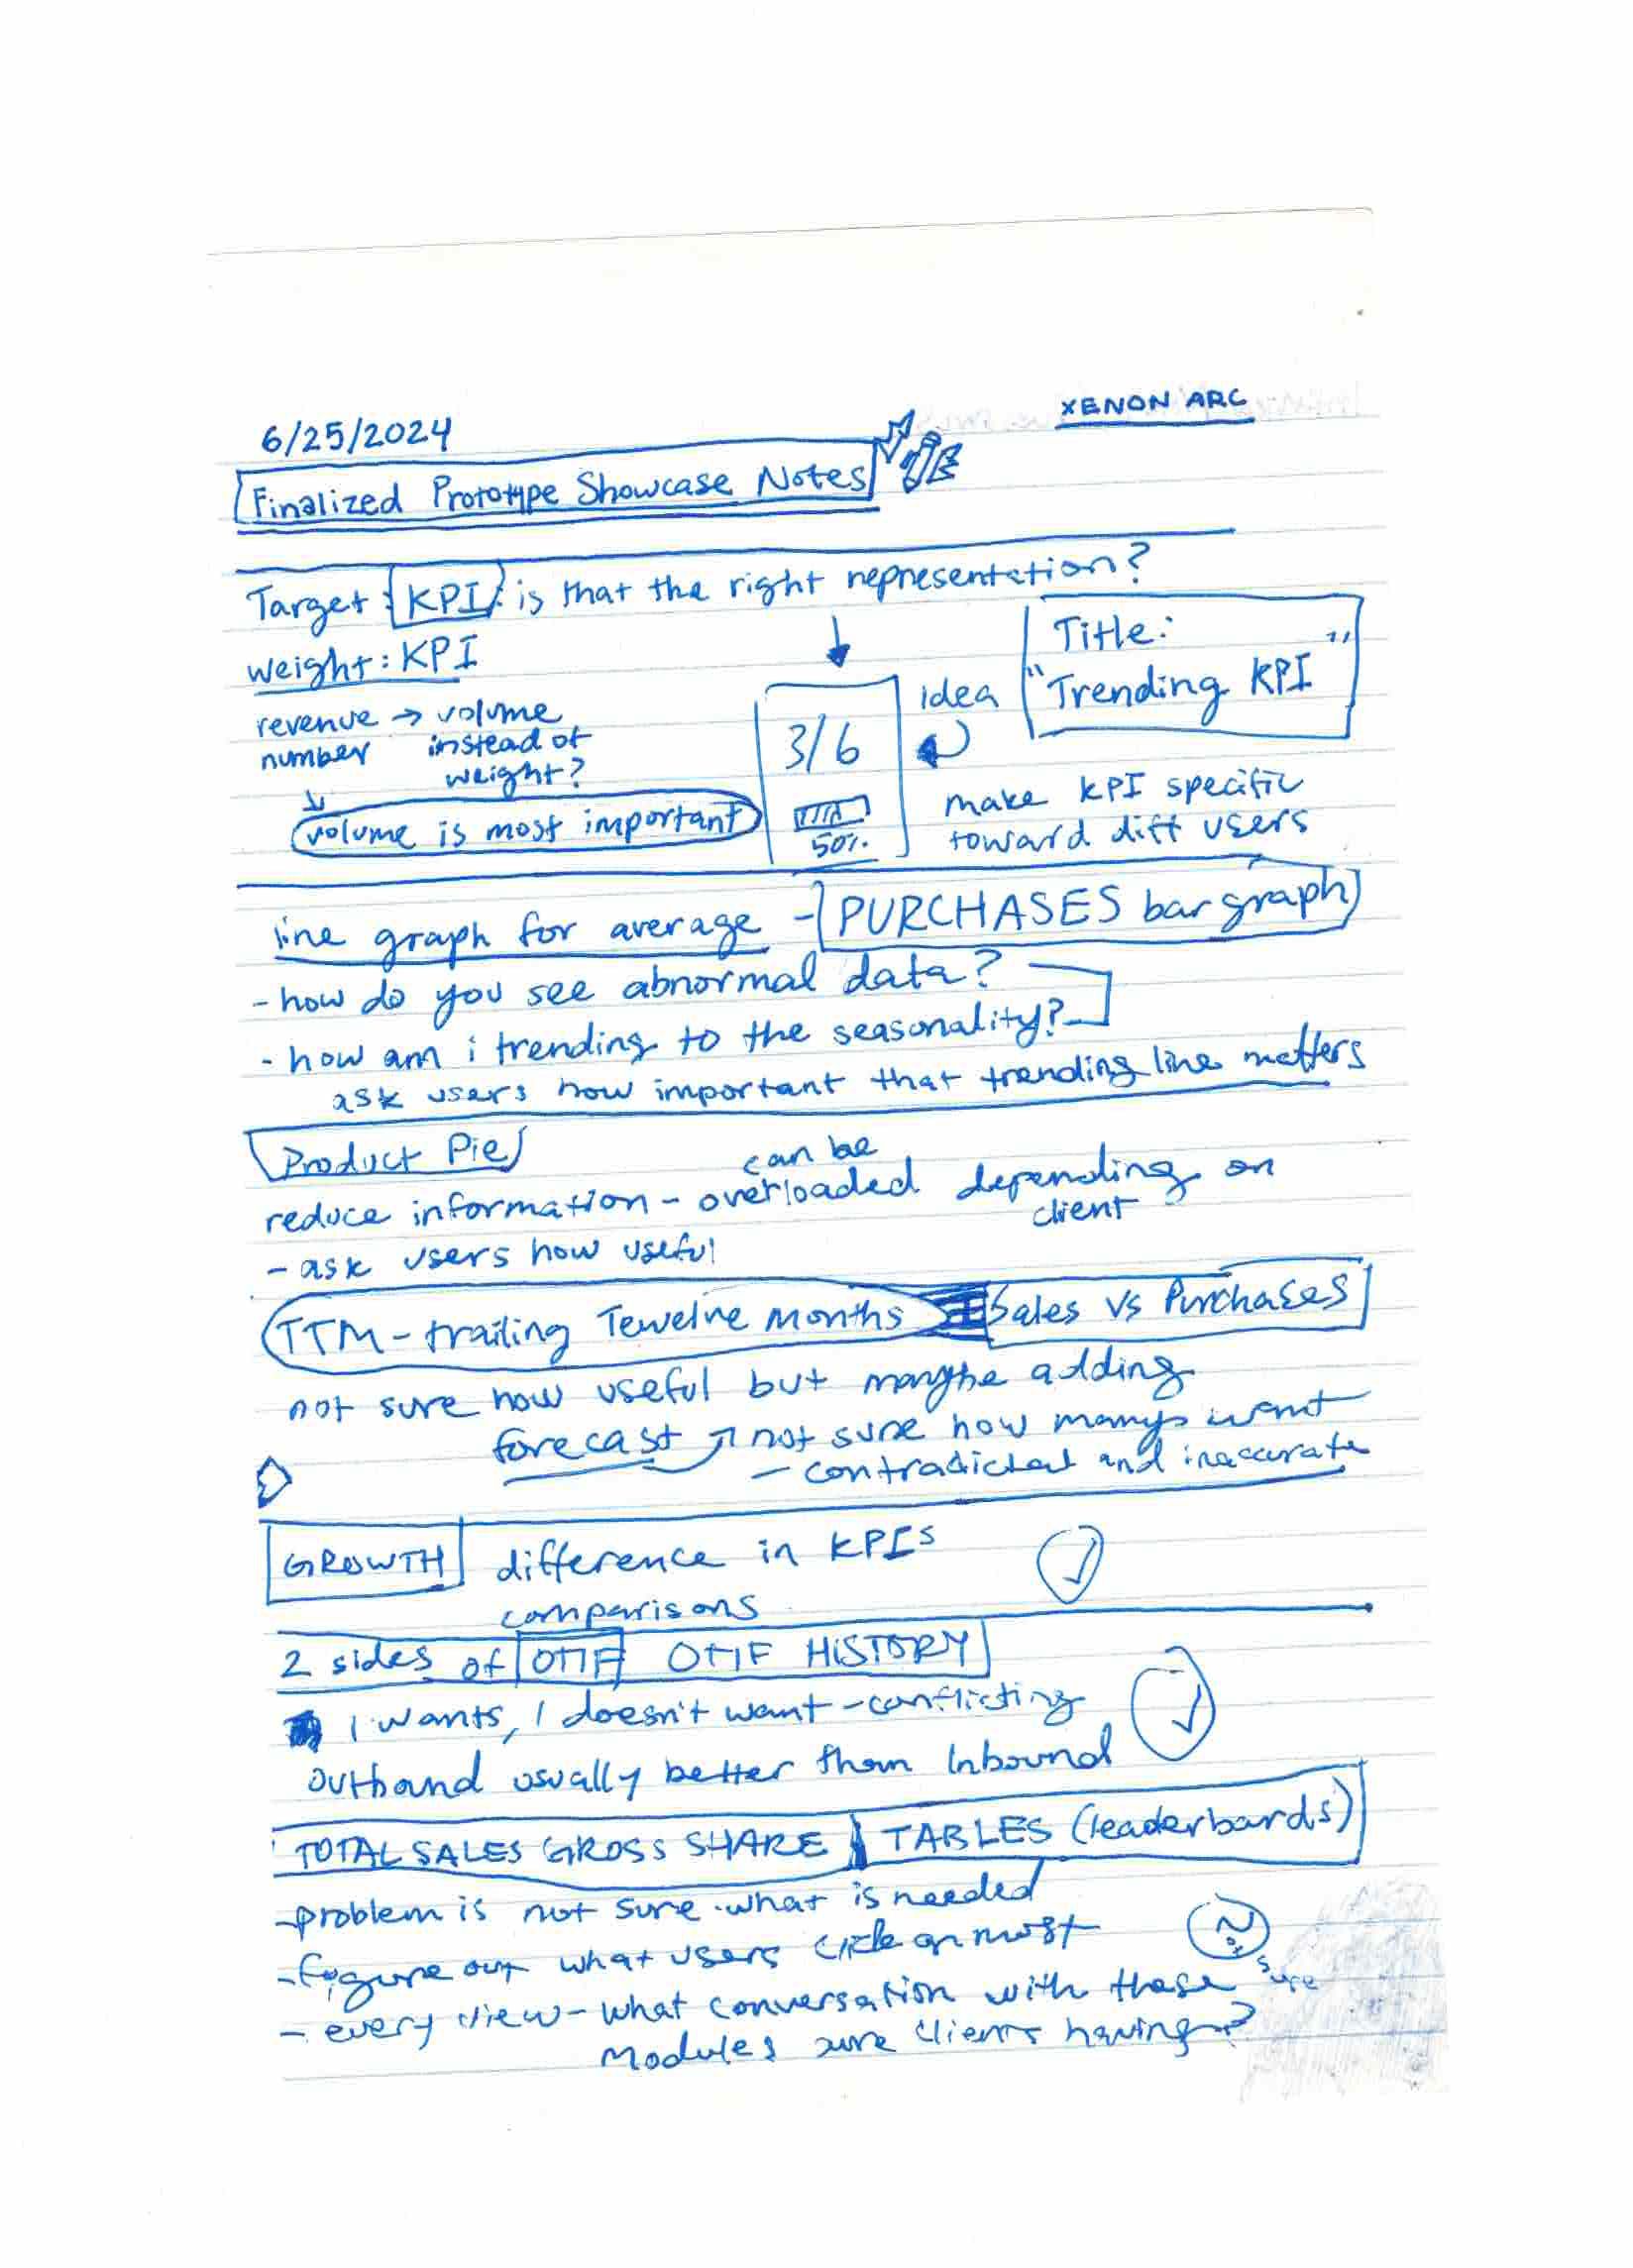 XENON ARC
6/25/2024
Finalized Prototype Showcase Notes
Target KPI: is that the right representation?
weight: KPI
Title:
"Trending KPI"
idea
revenue → volume
number instead of
weight?
volume is most important
3/6
50%
make KPI specific
toward diff users
line graph for average - PURCHASES bar graph
- how do you see abnormal data?
- how am i trending to the seasonality?
ask users how important that trending line matters
Product Pie
can be
reduce information - overloaded depending on
client
- ask users how useful
TTM - trailing Tewelve months Sales vs Purchases
not sure how useful but maybe adding
forecast not sure how many want
- contradicted and inaccurate
GROWTH difference in KPIs
comparisons
2 sides of OTIF OTIF HISTORY
1 wants, 1 doesn't want - conflicting
outband usually better than Inbound
TOTAL SALES GROSS SHARE TABLES (leaderbards)
- problem is not sure what is needed
- figure out what users click on most
N
not sure
- every view - what conversation with these
modules are clients having?